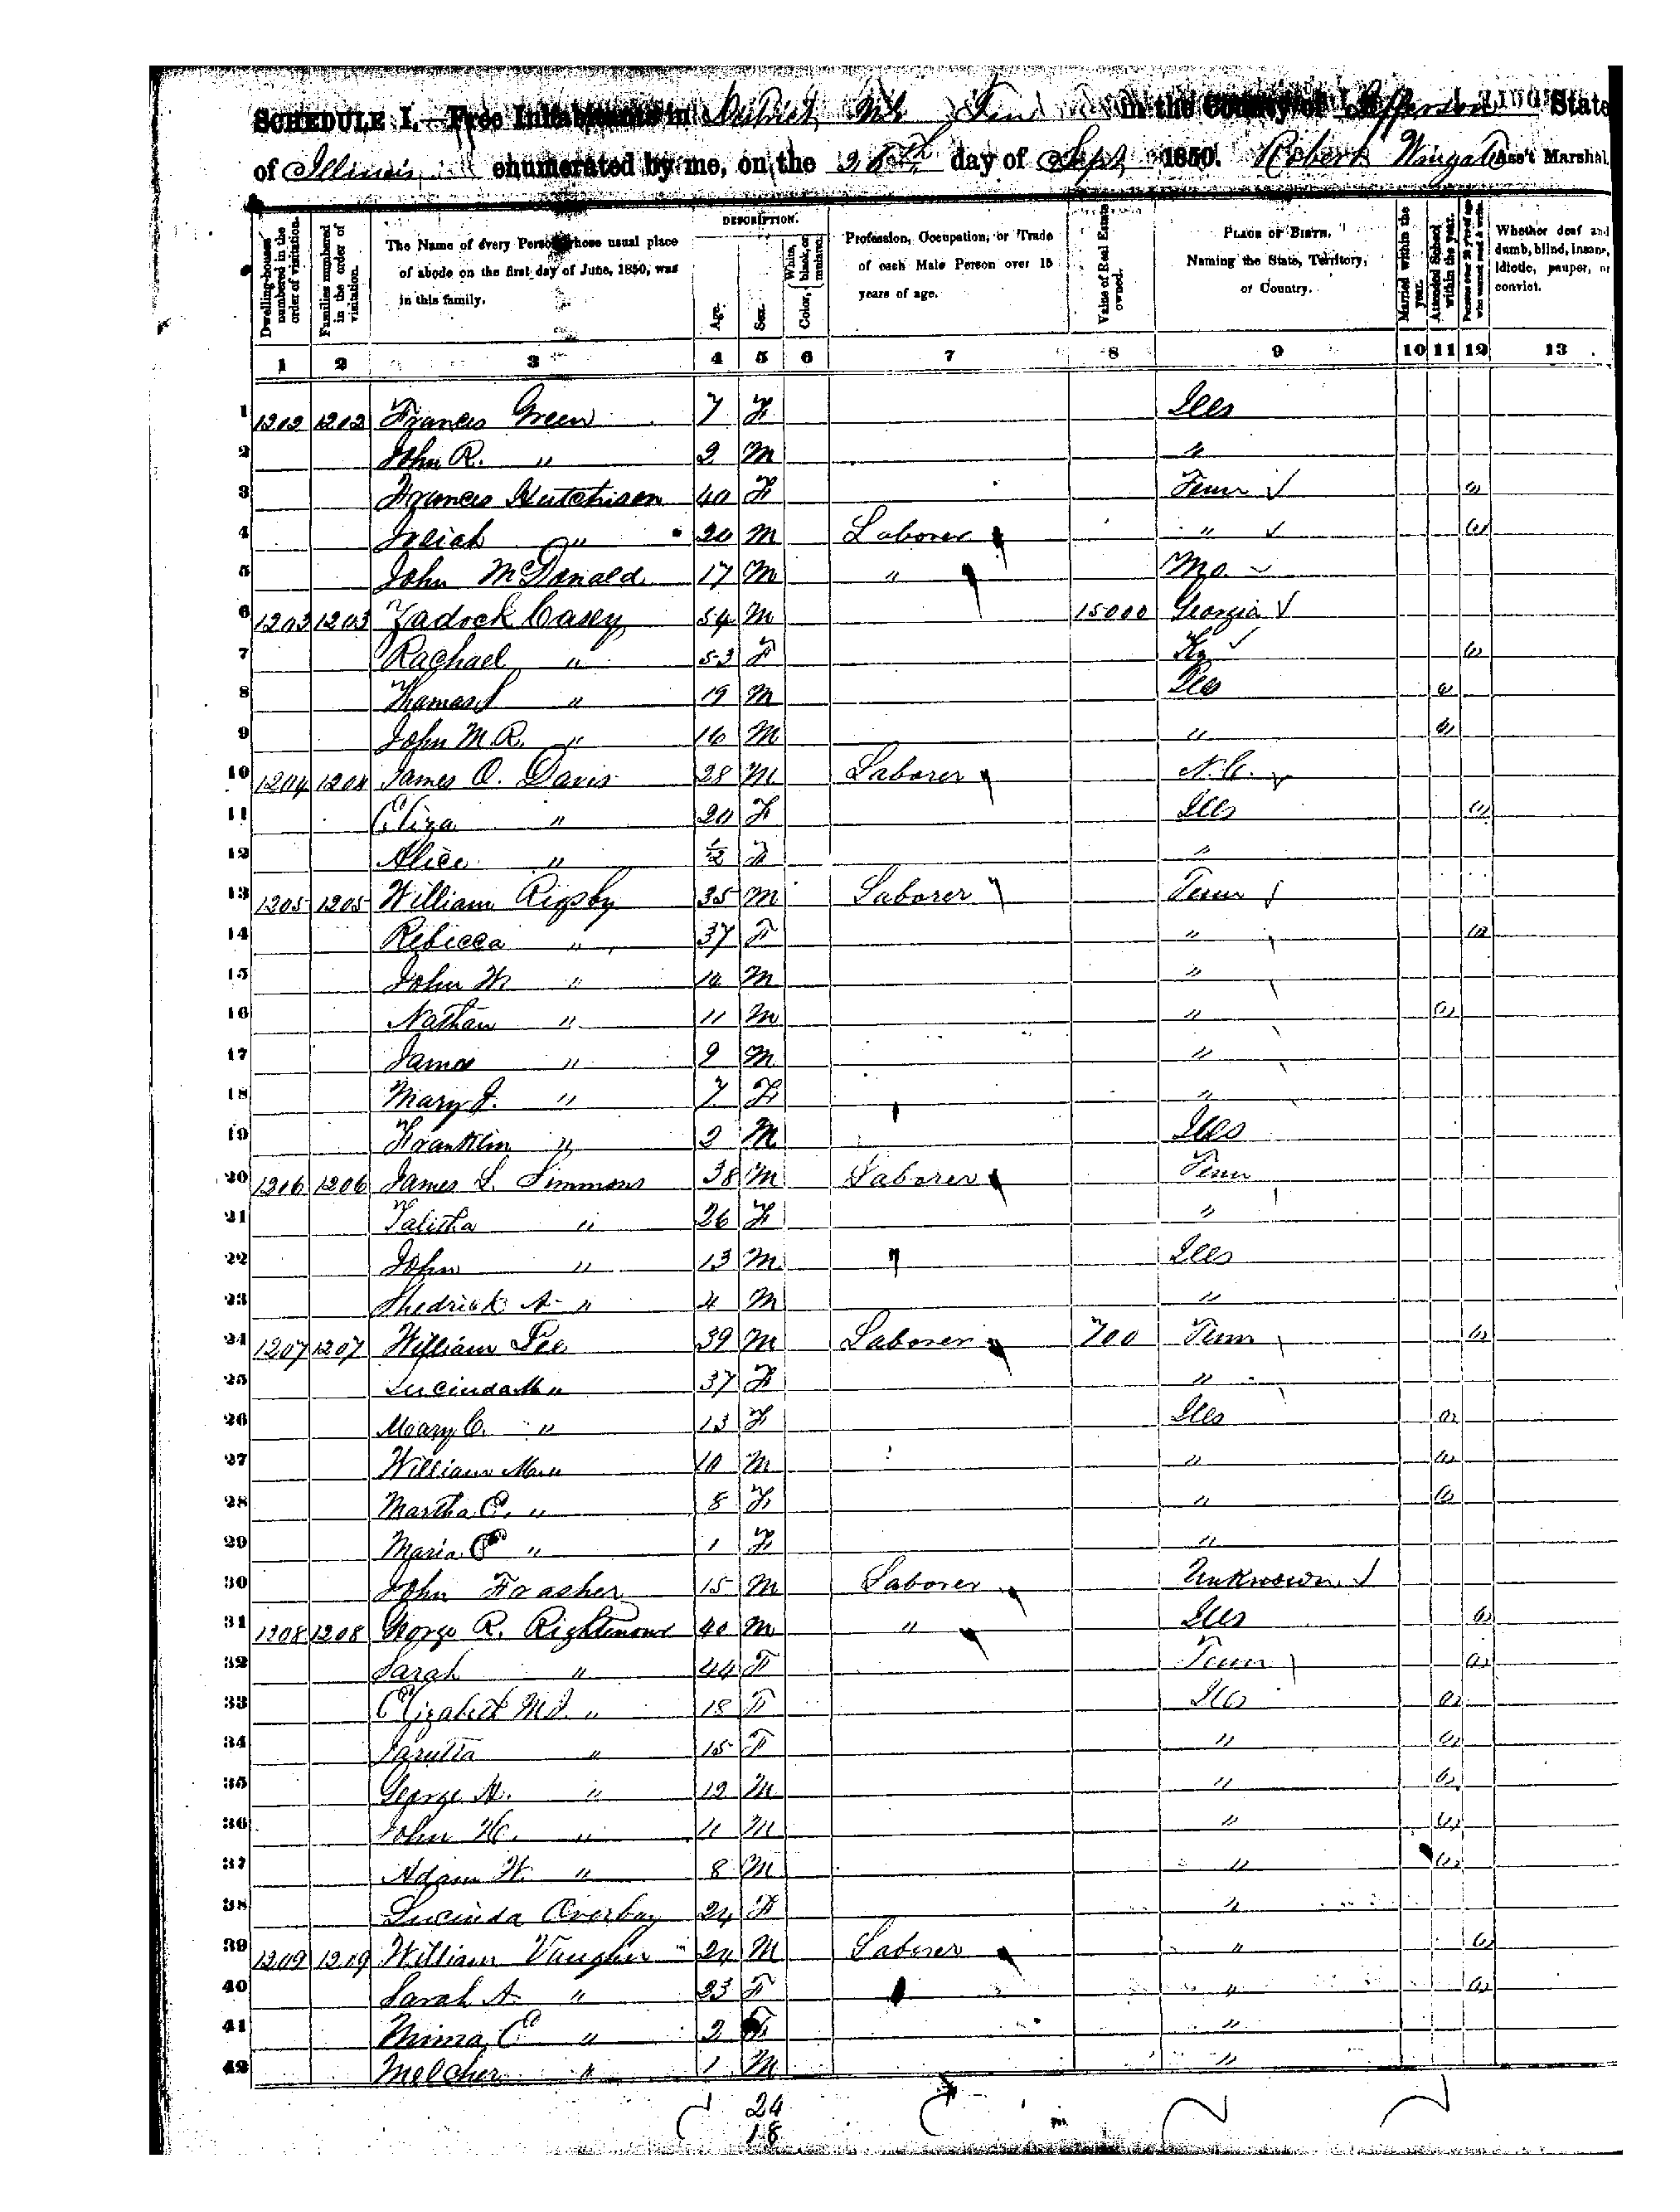 SCHEDULE I.—Free Inhabitants in District in the County of Jefferson State
of Illinois enumerated by me, on the 28th day of Sept 1850. Robert Wingate Ass't Marshal.
Dwelling-houses numbered in the order of visitation.
Families numbered in the order of visitation.
The Name of every Person whose usual place of abode on the first day of June, 1850, was in this family.
DESCRIPTION.
Age.
Sex.
Color, White, black, or mulatto.
Profession, Occupation, or Trade of each Male Person over 15 years of age.
Value of Real Estate owned.
PLACE OF BIRTH, Naming the State, Territory, or Country.
Married within the year.
Attended School within the year.
Persons over 20 y'rs of age who cannot read & write.
Whether deaf and dumb, blind, insane, idiotic, pauper, or convict.
1 2 3 4 5 6 7 8 9 10 11 12 13
1 1202 1202 Frances Green 7 F Ills
2 John R. " 2 M "
3 Frances Hutchison 40 F Tenn ✓ "
4 " 20 M Laborer " ✓ "
5 John McDonald 17 M " Mo.
6 1203 1203 Zadock Casey 54 M 15000 Georgia ✓
7 Rachael " 53 F Ky ✓ "
8 Thomas S " 19 M Ills "
9 John M. R. " 16 M " "
10 1204 1204 James O. Davis 28 M Laborer N.C.
11 Eliza " 20 F Ills "
12 Alice " 1/2 F "
13 1205 1205 William Rigsby 35 M Laborer Tenn
14 Rebecca " 37 F " "
15 John W " 14 M "
16 Nathan " 11 M " "
17 James " 9 M "
18 Mary J. " 7 F "
19 Franklin " 2 M Ills
20 1206 1206 James L. Simmons 38 M Laborer Tenn
21 Talitha " 26 F "
22 John " 13 M Ills
23 Shedrick A " 4 M "
24 1207 1207 William Lee 39 M Laborer 700 Tenn "
25 Lucinda M " 37 F "
26 Mary C. " 13 F Ills "
27 William M " 10 M " "
28 Martha E. " 8 F " "
29 Maria E " 1 F "
30 John Frasher 15 M Laborer Unknown ✓
31 1208 1208 George R. 40 M " Ills "
32 Sarah " 44 F Tenn "
33 Elizabeth M J. " 18 F Ills "
34 " 15 F " "
35 George H. " 12 M " "
36 John W. " 11 M " "
37 Adam W. " 8 M " "
38 Lucinda Overbay 24 F "
39 1209 1209 William Vaughn 24 M Laborer " "
40 Sarah A " 23 F " "
41 E " 2 F "
42 Melcher " 1 M "
24
18